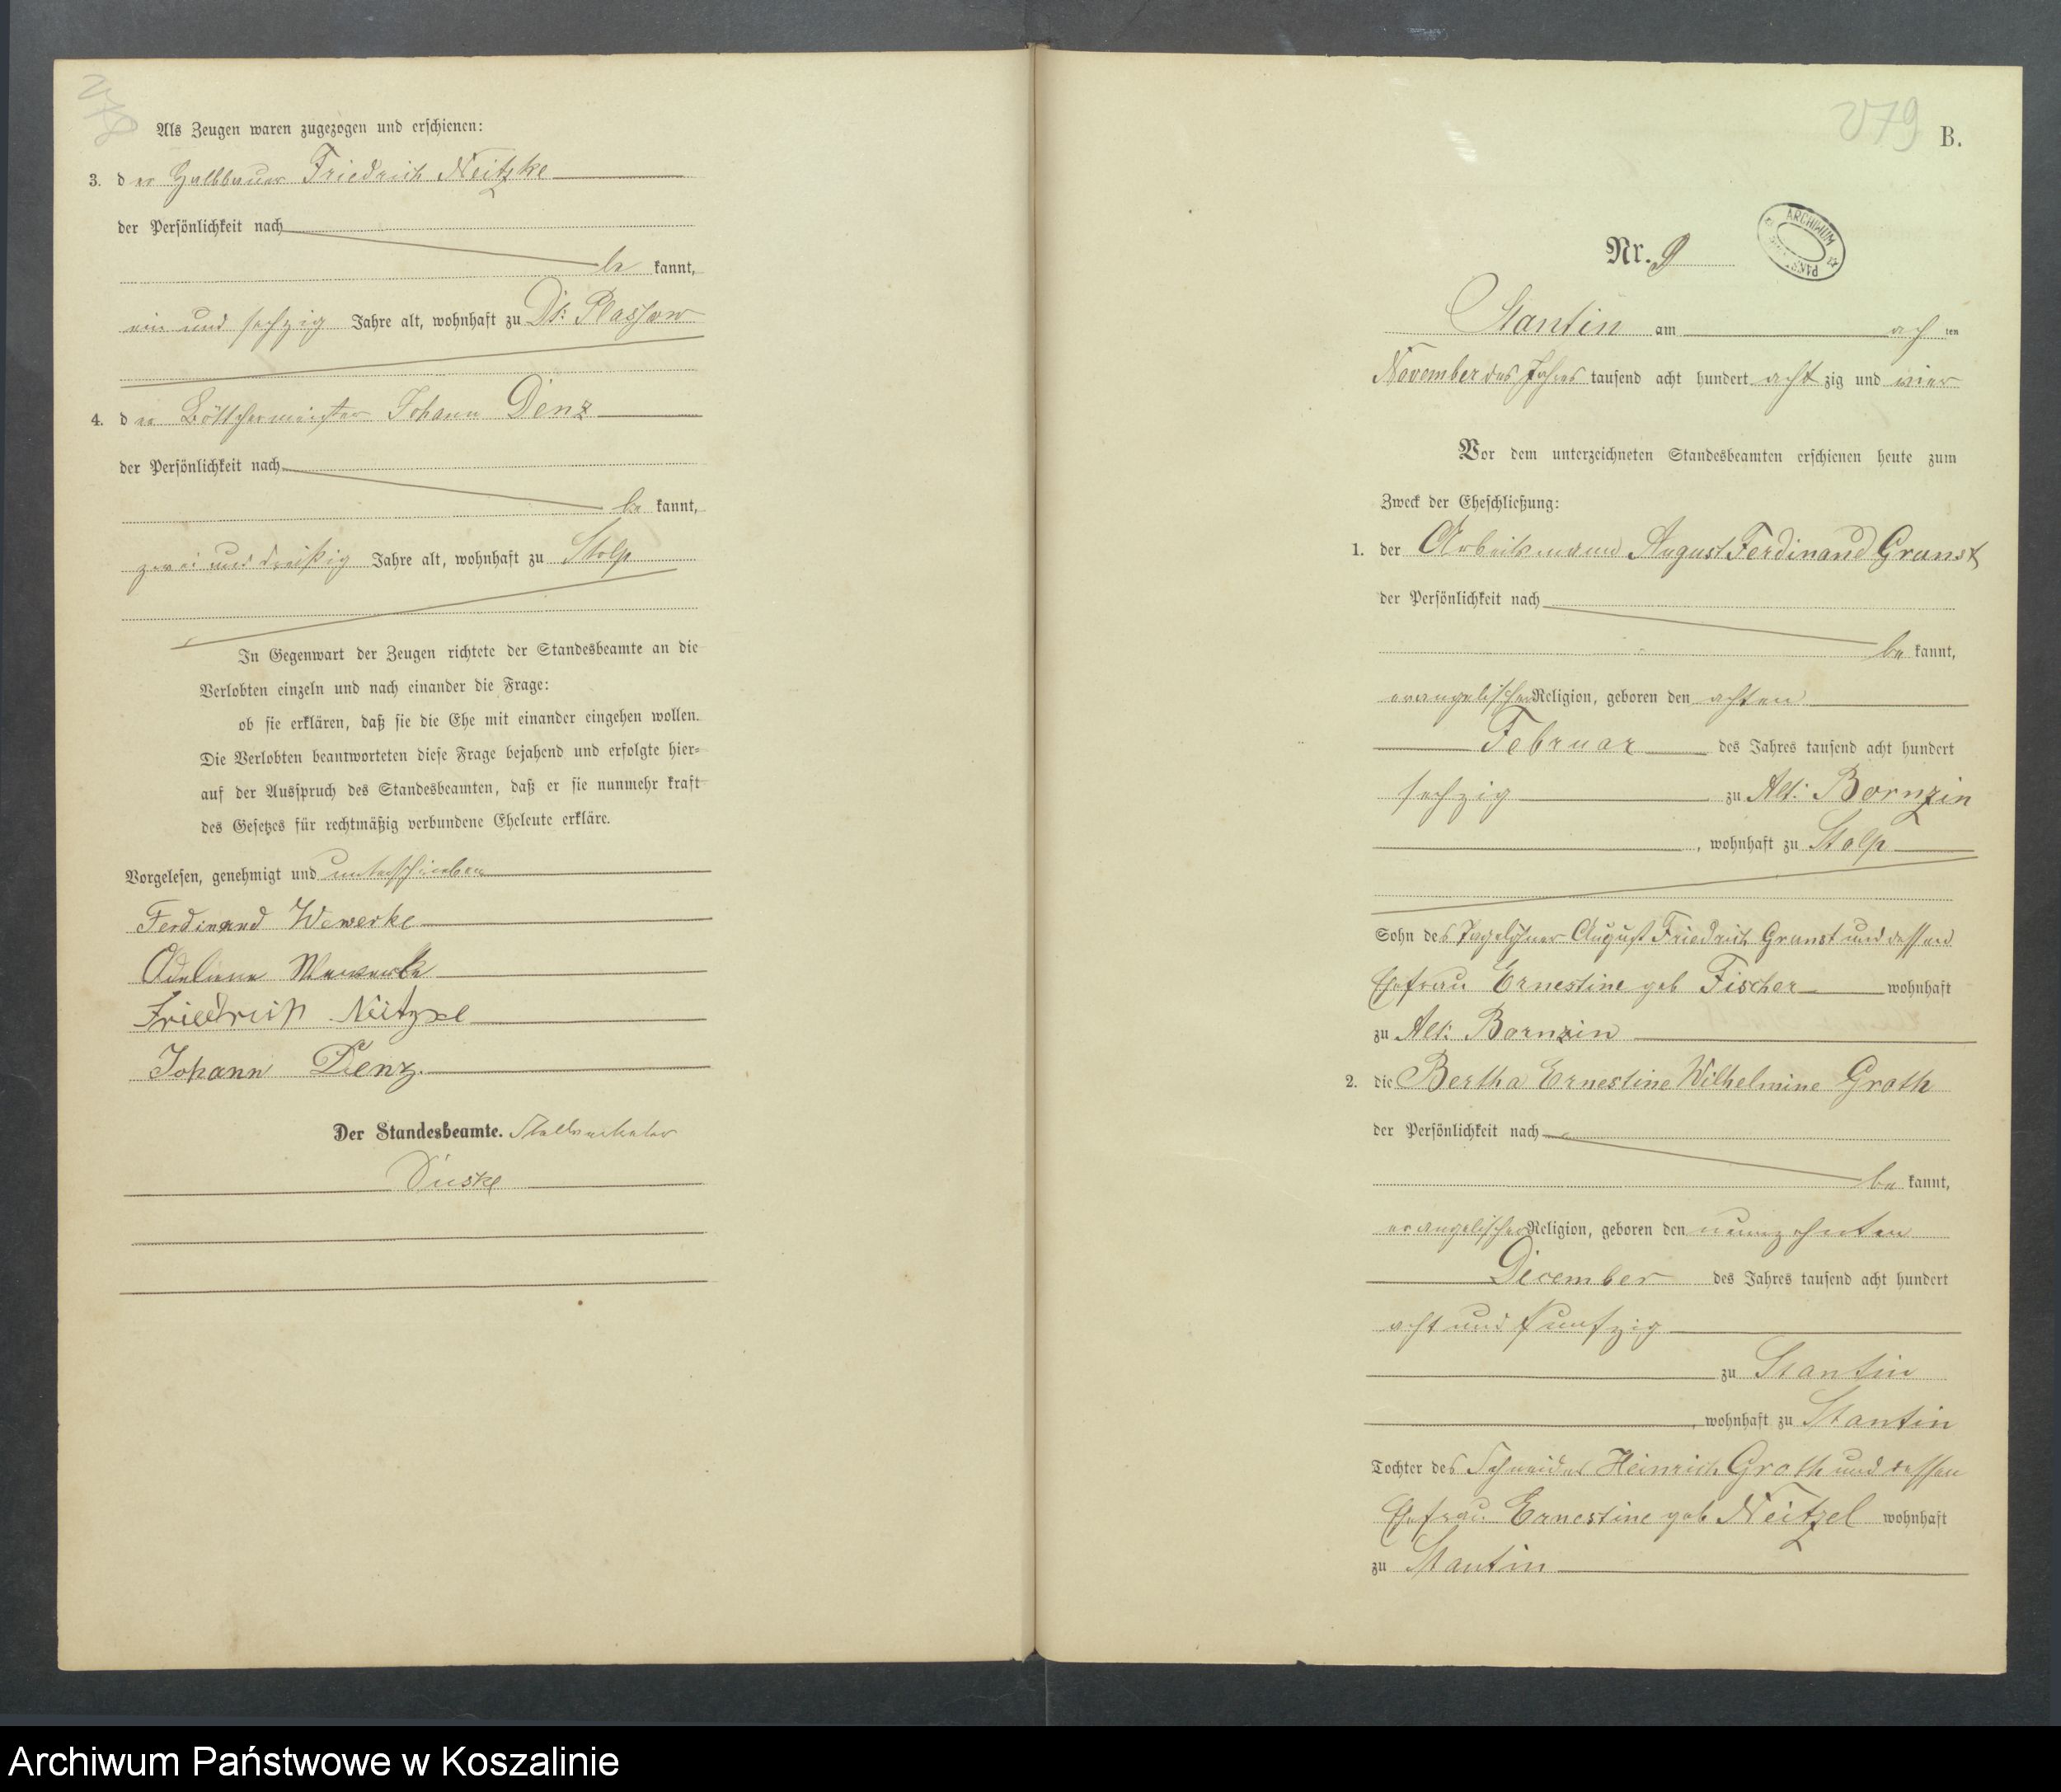 Als Zeugen waren zugezogen und erschienen:
3. der Halbbauer Friedrich Neitzke
der Persönlichkeit nach
be kannt,
ein und sechzig Jahre alt, wohnhaft zu Dt: Plassow
4. der Böttchermeister Johann Denz
der Persönlichkeit nach
be kannt,
zwei und dreißig Jahre alt, wohnhaft zu Stolp
In Gegenwart der Zeugen richtete der Standesbeamte an die
Verlobten einzeln und nach einander die Frage:
ob sie erklären, daß sie die Ehe mit einander eingehen wollen.
Die Verlobten beantworteten diese Frage bejahend und erfolgte hier-
auf der Ausspruch des Standesbeamten, daß er sie nunmehr kraft
des Gesetzes für rechtmäßig verbundene Eheleute erkläre.
Vorgelesen, genehmigt und unterschrieben
Ferdinand Wewerke
Wewerke
Friedrich Neitzke
Johann Denz.
Der Standesbeamte.
279
B.
Nr. 9
ARCHIWUM
Stantin am ach ten
November des Jahres tausend acht hundert acht zig und vier
Vor dem unterzeichneten Standesbeamten erschienen heute zum
Zweck der Eheschließung:
1. der Arbeitsmann August Ferdinand Granst
der Persönlichkeit nach
be kannt,
evangelischer Religion, geboren den achten
Februar des Jahres tausend acht hundert
sechzig zu Alt: Bornzin
, wohnhaft zu Stolp
Sohn des Tagelöhner August Friedrich Granst und dessen
Ehefrau Ernestine geb Fischer wohnhaft
zu Alt: Bornzin
2. die Bertha Ernestine Wilhelmine Groth
der Persönlichkeit nach
be kannt,
evangelischer Religion, geboren den neunzehnten
December des Jahres tausend acht hundert
acht und funfzig
zu Stantin
, wohnhaft zu Stantin
Tochter des Schneider Heinrich Groth und dessen
Ehefrau Ernestine geb Neitzel wohnhaft
zu Stantin
Archiwum Państwowe w Koszalinie